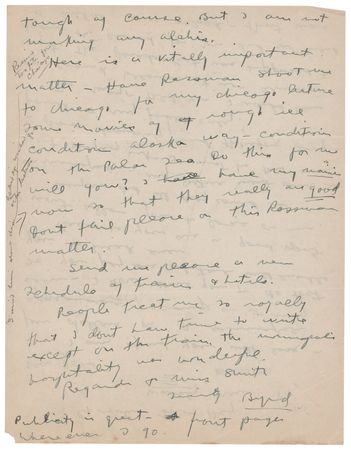 tough of course. But I am not
making any alibis.
Here is a vitally important
matter – Have Rossman shoot me
to chicago for my chicago lecture
some movies of rough ice
condition alaska way – condition
on the Polar sea. Do this for me
will you? I have my movies
now so that they really are good
Dont fail please on this Rossman
matter.
Send me please a new
schedule of trains & hotels.
People treat me so royally
that I dont have time to write
except on the train. The minneapolis
hospitality was wonderful.
Regards to miss Smith
Byrd
Publicity is great – front pages
where ever I go.